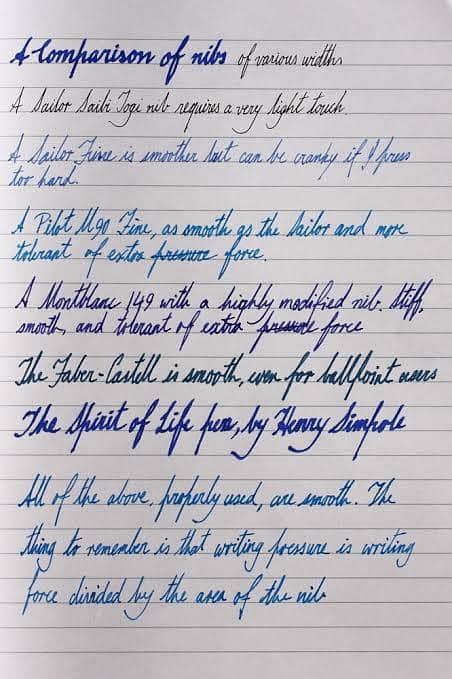 A Comparison of nibs of various widths
A Sailor Saibi Togi nib requires a very light touch.
A Sailor Fine is smoother but can be cranky if I press
too hard.
A Pilot M90 Fine, as smooth as the Sailor and more
tolerant of extra pressure force.
A Montblanc 149 with a highly modified nib. Stiff,
smooth, and tolerant of extra pressure force
The Faber-Castell is smooth, even for ballpoint users
The Spirit of Life pen, by Henry Simpole
All of the above, properly used, are smooth. The
thing to remember is that writing pressure is writing
force divided by the area of the nib